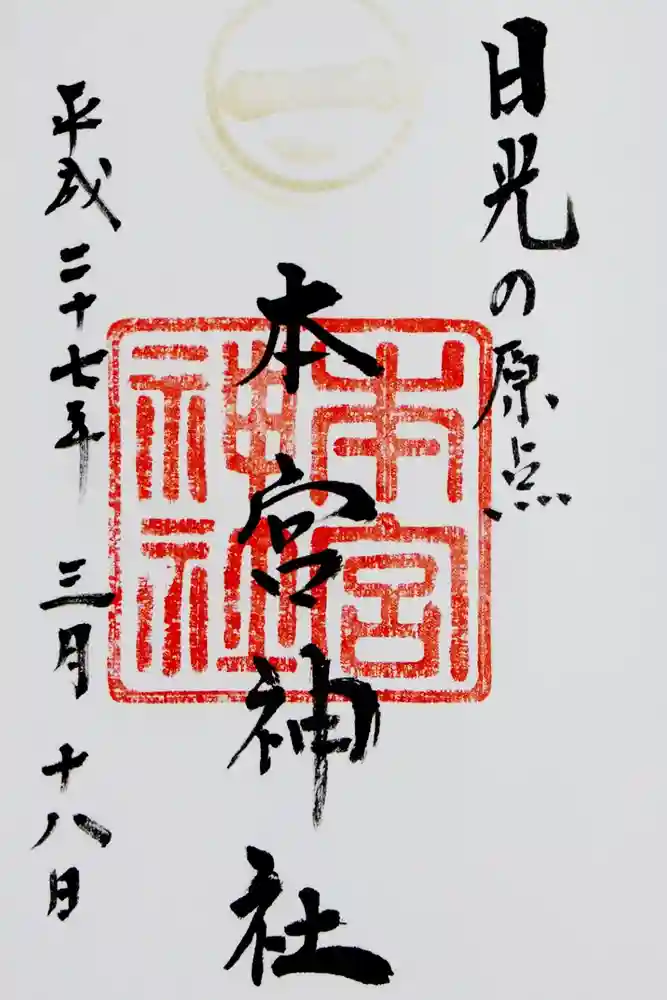 日光の原点
本宮神社
本宮
神社
平成二十七年 三月 十八日